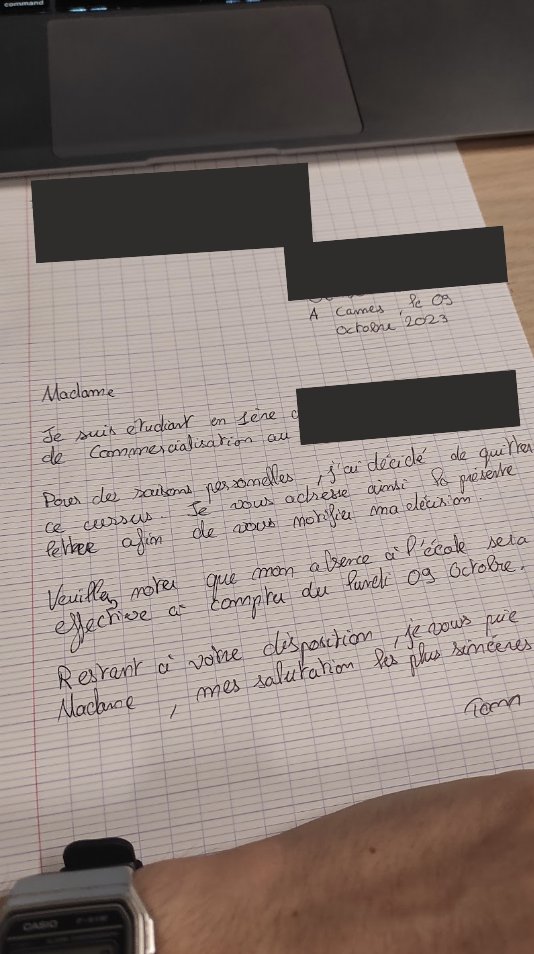 command
A Cannes, le 09
Octobre 2023
Madame
Je suis étudiant en 1ère
de Commercialisation au
Pour des raisons personnelles, j'ai décidé de quitter
ce cursus. Je vous adresse ainsi la présente
lettre afin de vous notifier ma décision.
Veuillez noter que mon absence à l'école sera
effective à compter du lundi 09 Octobre.
Restant à votre disposition, je vous prie
Madame, mes salutation les plus sincères
Tom
CASIO